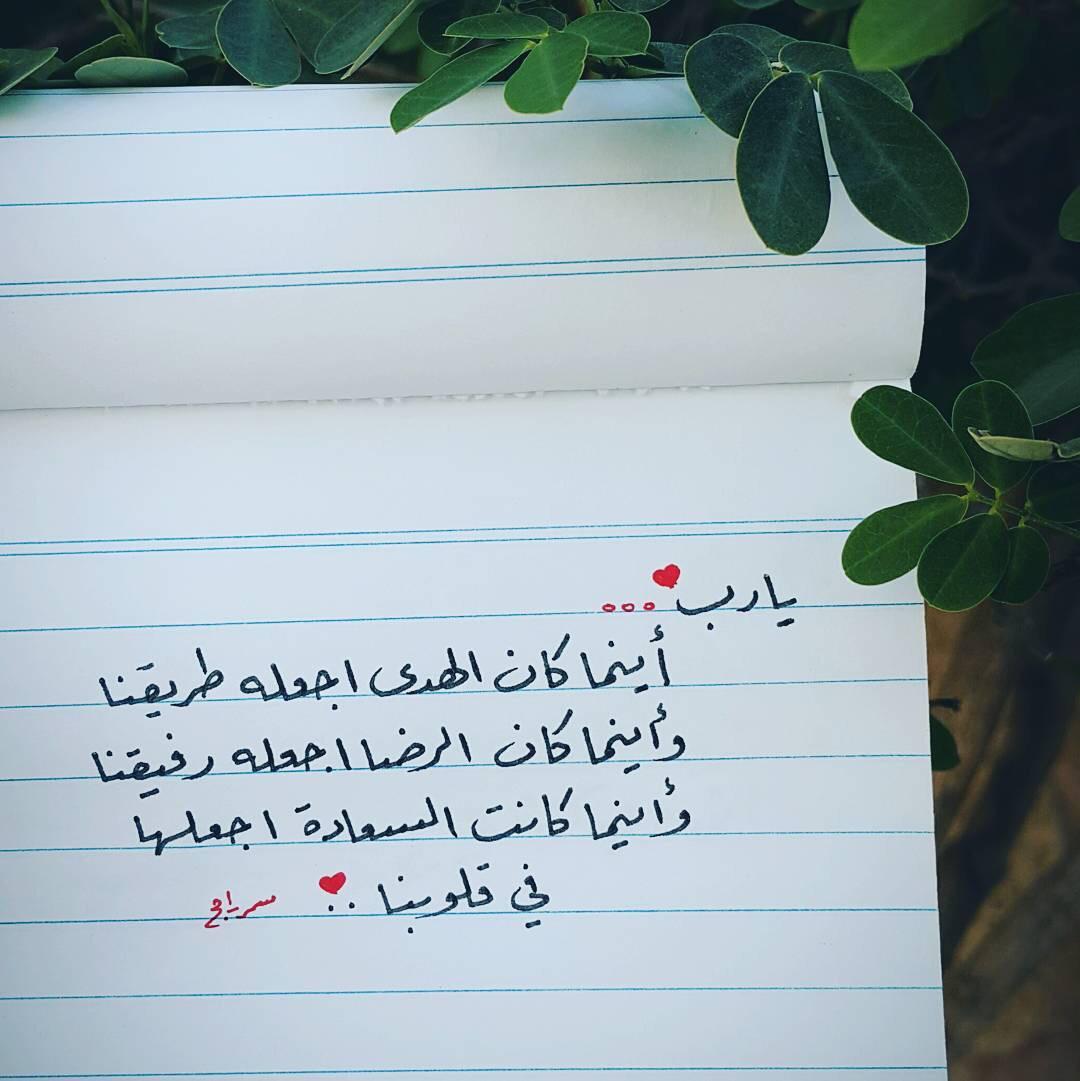 يارب ...
أينما كان الهدى اجعله طريقنا
وأينما كان الرضا اجعله رفيقنا
وأينما كانت السعادة اجعلها
في قلوبنا .. سراج